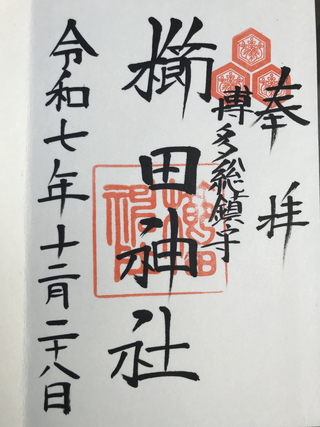 奉拝
博多総鎮守
櫛田神社
令和七年十二月二十八日